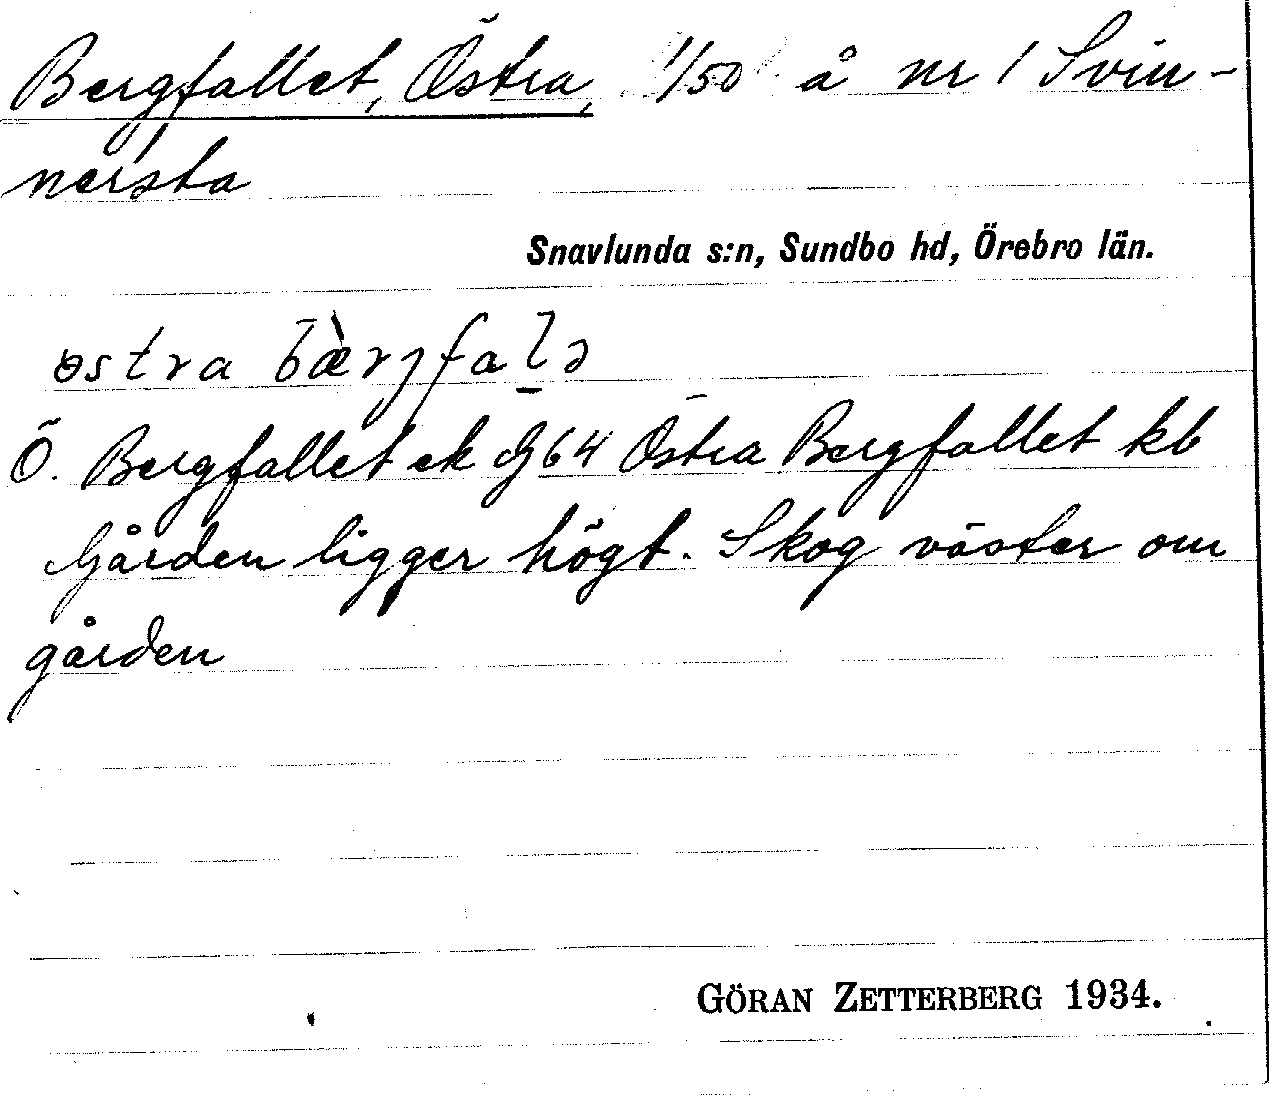 Bergfallet, Östra, 1/50 å nr 1 Svin-
nersta
Snavlunda s:n, Sundbo hd, Örebro län.
östra bæ̀rjfalə
Ö. Bergfallet ek G64 Östra Bergfallet kb
Gården ligger högt. Skog väster om
gården
GÖRAN ZETTERBERG 1934.